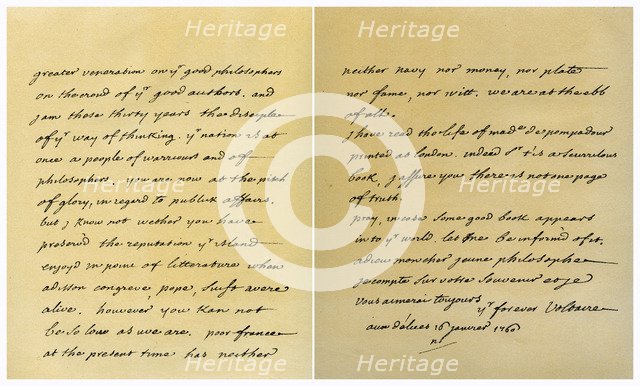 greater veneration on yr good philosophers
on the croud of yr good authors. and
j am these thirty years the disciple
of yr way of thinking. yr nation is at
once a people of warriours and off
philosophers. you are now at the pitch
of glory, in regard to publick affairs.
but j know not wether you have
preserv'd the reputation yr island
enjoy'd in point of litterature when
adisson congreve, pope, swift were
alive. however you kan not
be so low as we are. poor france
at the present time has neither
neither navy nor money, nor plate
nor fame, nor witt. we are at the ebb
of all.
j have read the life of made de pompadour
printed at london. indeed sr t'is a scurrilous
book, j assure you there is not one page
of truth.
pray, in case some good book appears
in to yr world. let me be inform'd of it.
adieu mon cher jeune philosophe
je compte sur votre souvenir et je
vous aimerai toujours
yr forever Voltaire
aux délices 16 janvier 1760
Heritage
Heritage
Heritage
Heritage
Heritage
Heritage